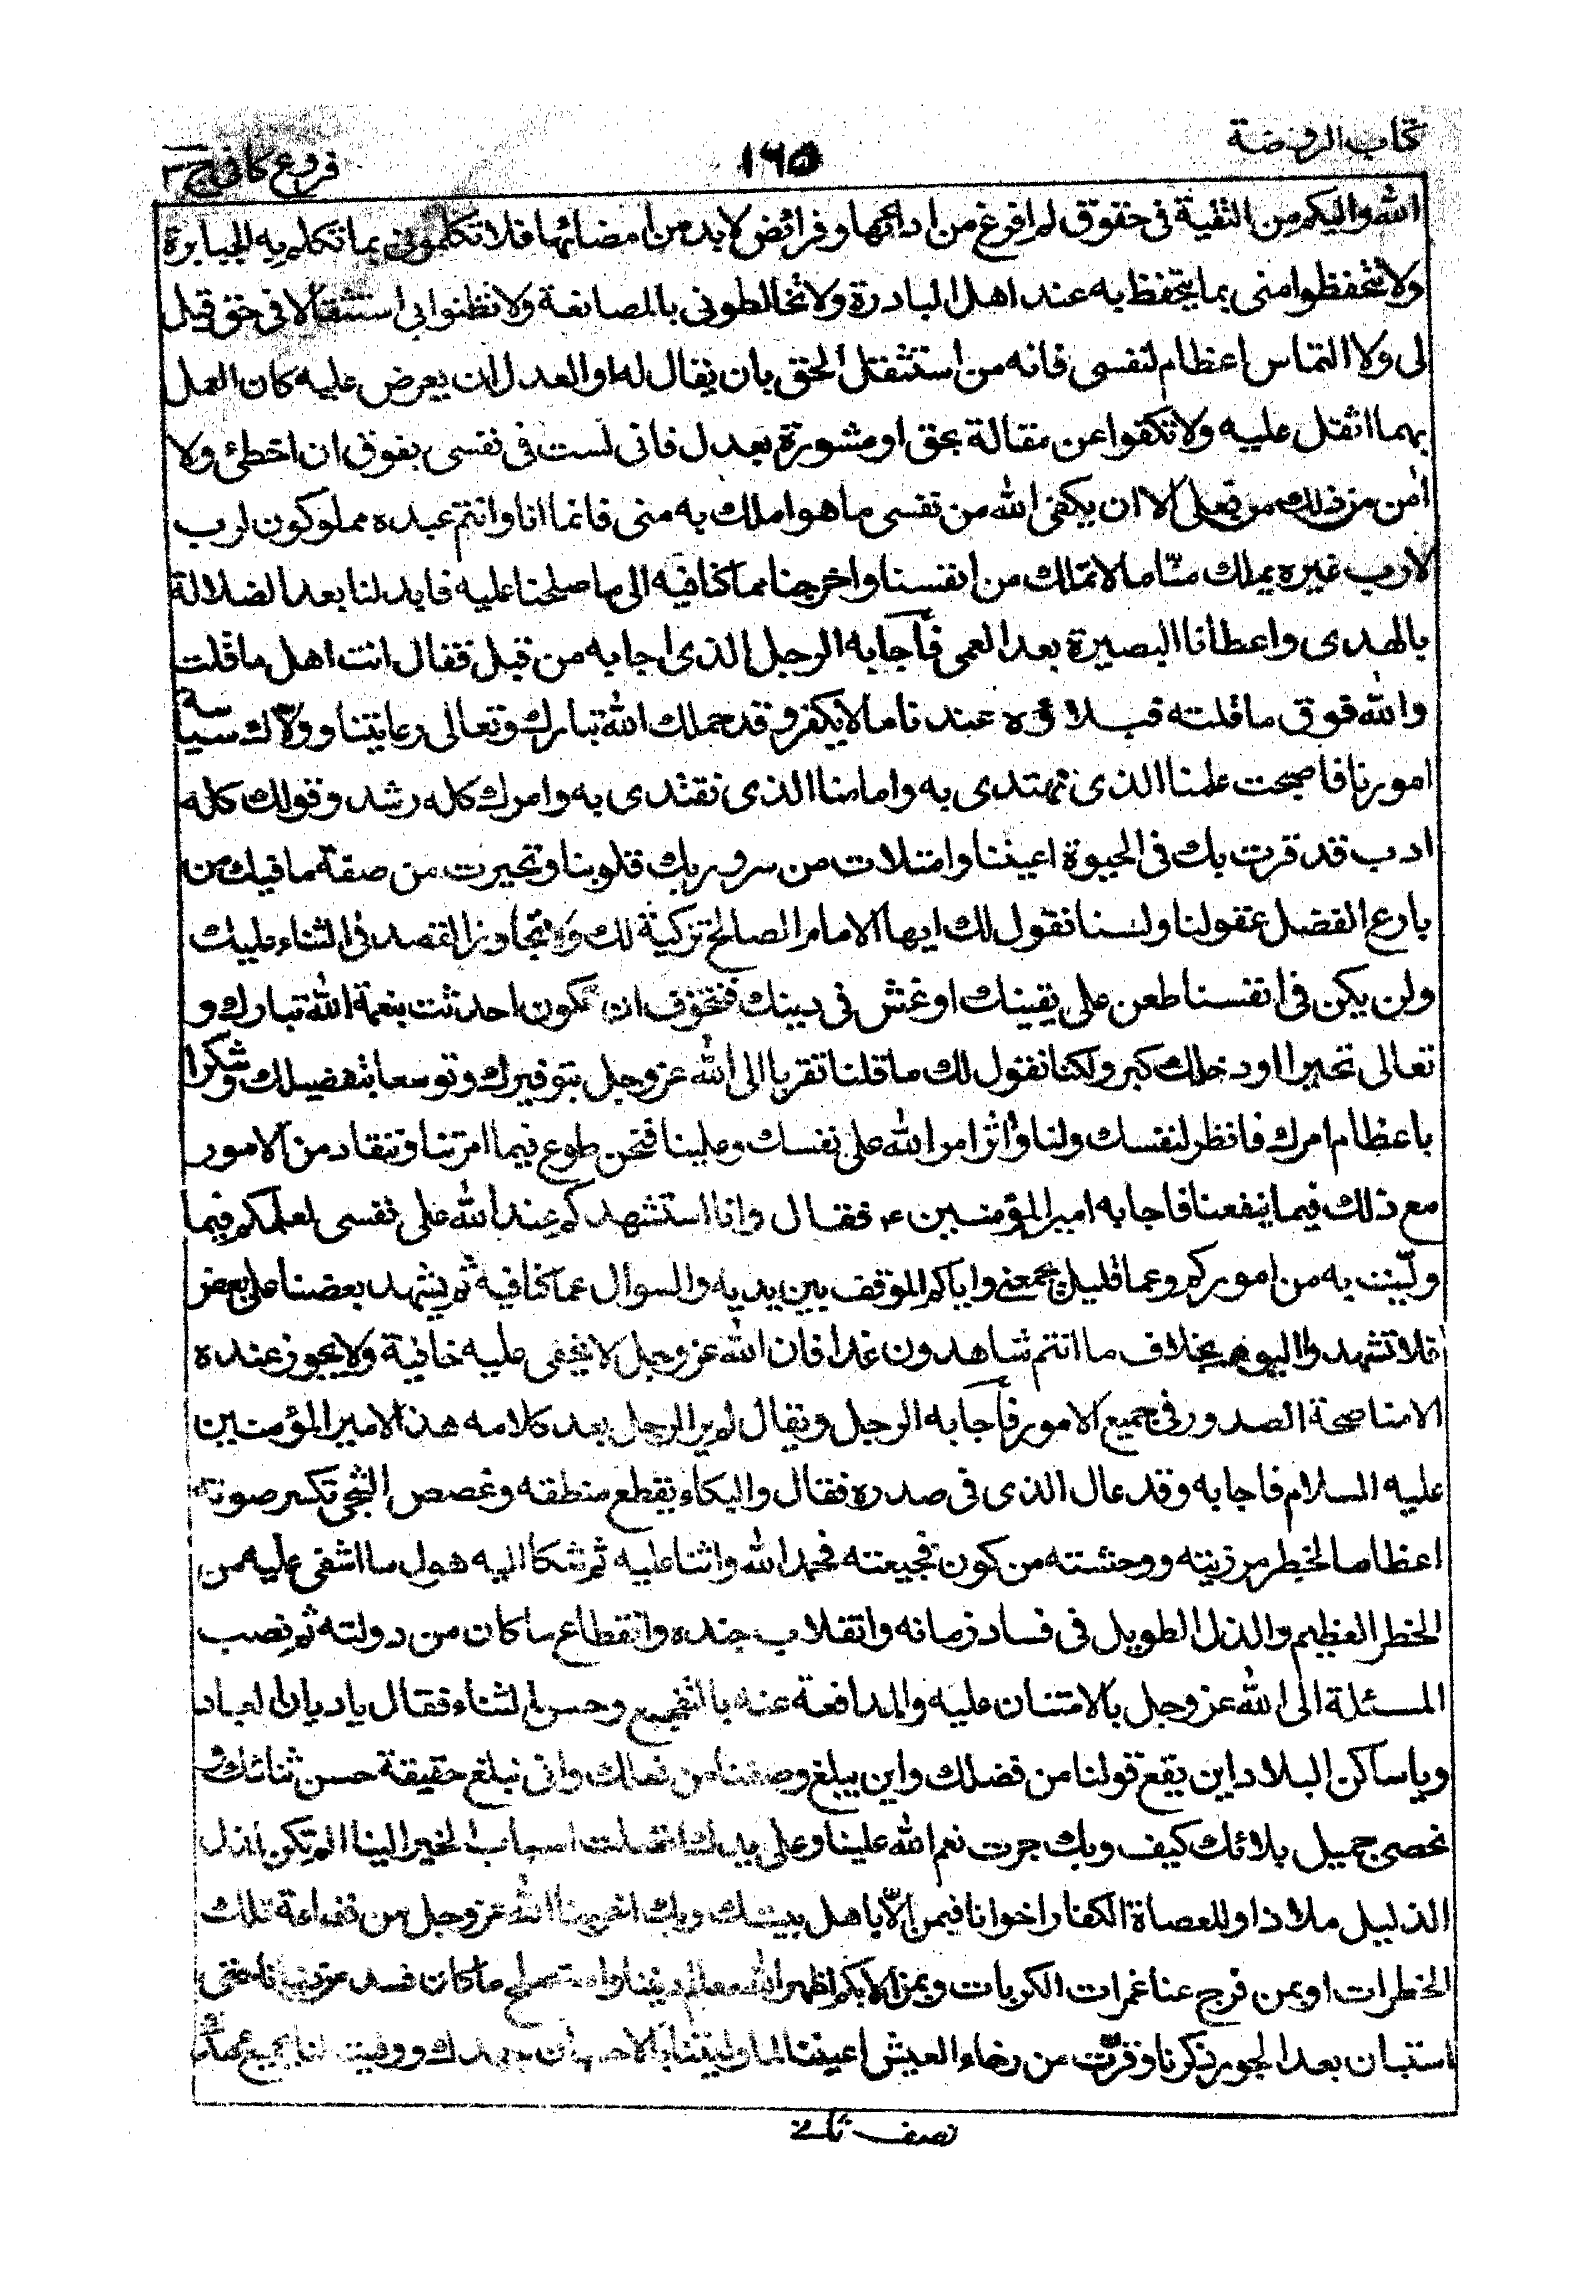 كتاب الروضة
١٦٥
فروع كافي ج ٣
الله واليكم من التقية فى حقوق لم افرغ من ادائها وفرائض لابد من امضائها فلا تكلمونى بما تكلم به الجبابرة
ولا تتحفظوا منى بما يتحفظ به عند اهل البادرة ولا تخالطونى بالمصانعة ولا تظنوا بى استثقالا فى حق قيل
لى ولا التماس اعظام لنفسى فانه من استثقل الحق بان يقال له او العدل ان يعرض عليه كان العمل
بهما اثقل عليه ولا تكفوا عن مقالة بحق او مشورة بعدل فانى لست فى نفسى بفوق ان اخطئ ولا
امن من ذلك من فعلى الا ان يكفى الله من نفسى ما هو املك به منى فانما انا وانتم عبده مملوكون لرب
لا رب غيره يملك منّا ما لا نملك من انفسنا واخرجنا مما كنا فيه الى ما صلحنا عليه فابدلنا بعد الضلالة
بالهدى واعطانا البصيرة بعد العمى فأجابه الرجل الذى اجابه من قبل فقال انت اهل ما قلت
والله فوق ما قلته فبلاؤه عندنا ما لا يكفر وقد حملك الله تبارك وتعالى رعايتنا وولّاك سياسة
امورنا فاصبحت علمنا الذى نهتدى به وامامنا الذى نقتدى به وامرك كله رشد وقولك كله
ادب قد قرت بك فى الحيوة اعيننا وامتلات من سرور بك قلوبنا وتحيرت من صفة ما فيك من
بارع الفضل عقولنا ولسنا نقول لك ايها الامام الصالح تزكية لك ولا نتجاوز القصد فى الثناء عليك
ولن يكن فى انفسنا طعن على يقينك او غش فى دينك فنتخوف ان تكون احدثت بنعمة الله تبارك و
تعالى تجبرا او دخلك كبر ولكنا نقول لك ما قلنا تقربا الى الله عز وجل بتوقيرك وتوسعا بتفضيلك وشكرا
باعظام امرك فانظر لنفسك ولنا واٰثر امر الله على نفسك وعلينا فنحن طوع فيما امرتنا وننقاد من الامور
مع ذلك فيما ينفعنا فاجابه امير المؤمنين ع فقال وانا استشهدكم عند الله على نفسى لعلمكم فيما
ولّيت به من اموركم وعما قليل يجمعنى واياكم الموقف بين يديه والسوال عما كنا فيه ثم يشهد بعضنا على بعض
فلا تشهدوا اليوم بخلاف ما انتم شاهدون غدا فان الله عز وجل لا يخفى عليه خافية ولا يجوز عنده
الا مناصحة الصدور فى جميع الامور فأجابه الرجل ويقال لم ير الرجل بعد كلامه هذا لامير المؤمنين
عليه السلام فاجابه وقد عال الذى فى صدره فقال والبكاء يقطع منطقه وغصص الشجى تكسر صوته
اعظاما لخطر مرزيته ووحشته من كون فجيعته فحمد الله واثنا عليه ثم شكا اليه هول ما اشفى عليه من
الخطر العظيم والذل الطويل فى فساد زمانه وانقلاب جنده وانقطاع ما كان من دولته ثم نصب
المسئلة الى الله عز وجل بالامتنان عليه والمدافعة عنه بالتفجع وحسن الثناء فقال يا ربانى العباد
ويا ساكن البلاد اين يقع قولنا من فضلك واين يبلغ وصفنا من فعلك وانى نبلغ حقيقة حسن ثنائك و
نحصى جميل بلائك كيف وبك جرت نعم الله علينا وعلى يدك اتصلت اسباب الخير الينا الم تكن لذل
الذليل ملاذا وللعصاة الكفار اخوانا فبمن الّا باهل بيتك وبك اخرجنا الله عز وجل من فظاعة تلك
الخطرات او بمن فرج عنا غمرات الكربات وبمن الا بكم اظهر الله معالم ديننا واستصلح ما كان فسد من دنيانا حتى
استبان بعد الجور ذكرنا وقرّت من رخاء العيش اعيننا لما وليتنا بالاحسان جهدك ووفيت لنا بجميع عهدك
نصف ثانى